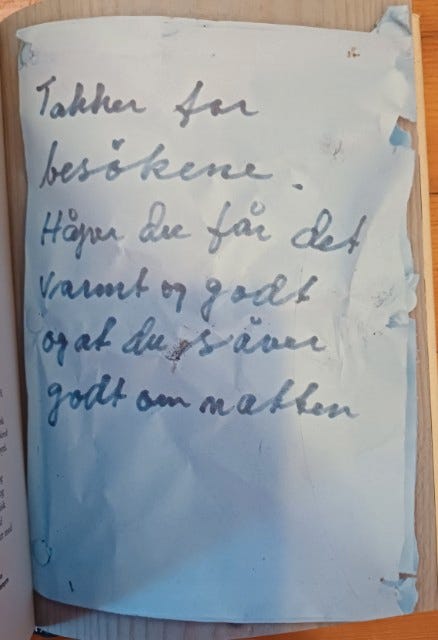 Takker for
besökene.
Håper du får det
varmt og godt
og at du säver
godt om natten